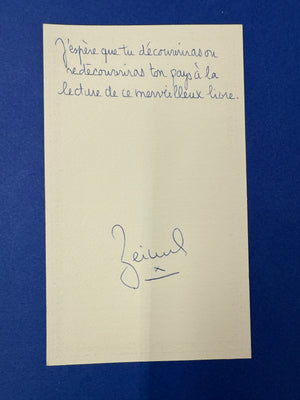 J'espère que tu découvriras ou
redécouvriras ton pays à la
lecture de ce merveilleux livre.
x